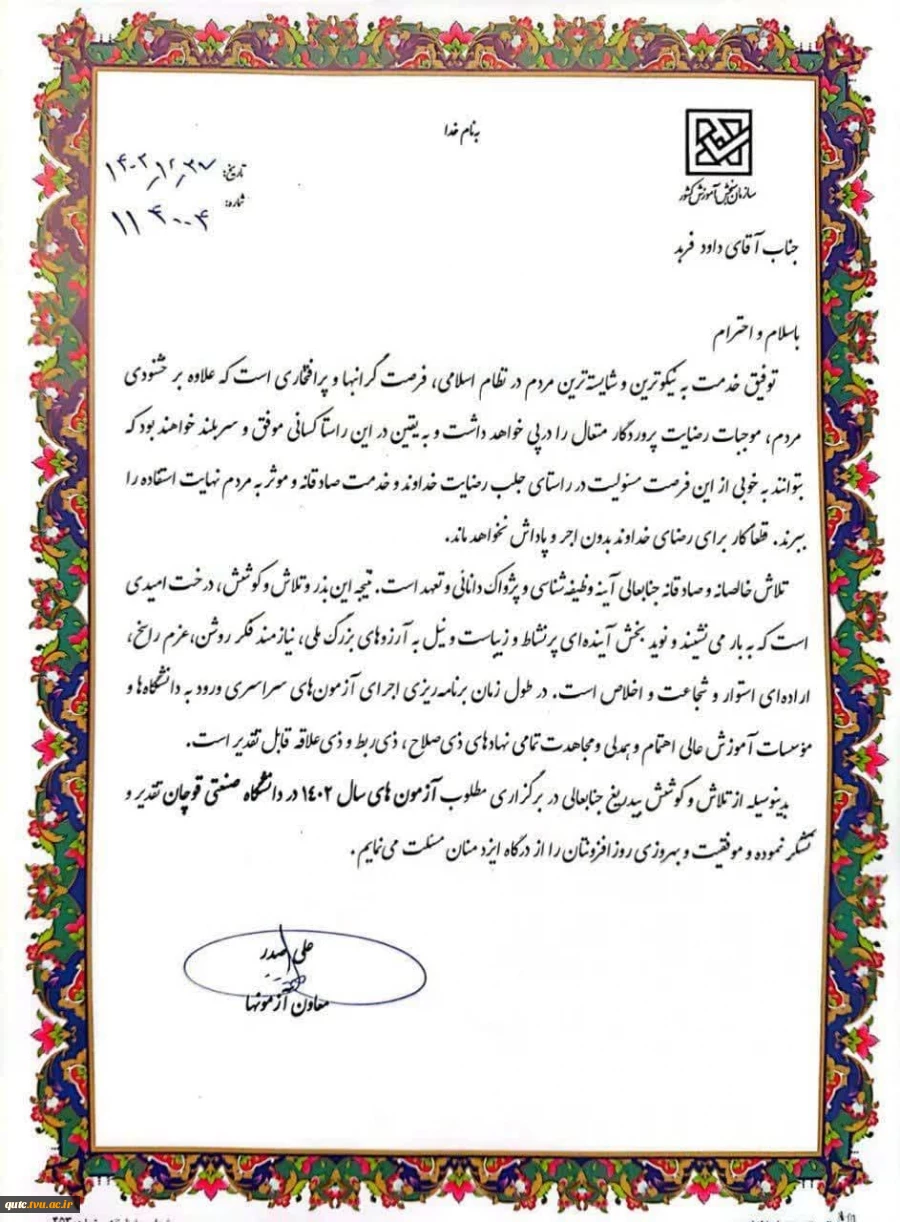 به نام خدا
سازمان سنجش آموزش کشور
تاریخ: ۱۴۰۲/۱۲/۲۷
شماره: ۱۱۴۰۰۴
جناب آقای داود فرهد
باسلام و احترام
توفیق خدمت به نیکوترین و شایسته‌ترین مردم در نظام اسلامی، فرصت گرانبها و پرافتخاری است که علاوه بر خشنودی
مردم، موجبات رضایت پروردگار متعال را درپی خواهد داشت و به یقین در این راستا کسانی موفق و سربلند خواهند بود که
بتوانند به خوبی از این فرصت مسئولیت در راستای جلب رضایت خداوند و خدمت صادقانه و موثر به مردم نهایت استفاده را
ببرند. قطعا کار برای رضای خداوند بدون اجر و پاداش نخواهد ماند.
تلاش خالصانه و صادقانه جنابعالی آینه وظیفه‌شناسی و پژواک دانائی و تعهد است. نتیجه این بذر و تلاش و کوشش، درخت امیدی
است که به بار می‌نشیند و نوید بخش آینده‌ای پرنشاط و زیباست و نیل به آرزوهای بزرگ ملی، نیازمند فکر روشن، عزم راسخ،
اراده‌ای استوار و شجاعت و اخلاص است. در طول زمان برنامه‌ریزی اجرای آزمون‌های سراسری ورود به دانشگاه‌ها و
مؤسسات آموزش عالی اهتمام و همدلی و مجاهدت تمامی نهادهای ذی‌صلاح، ذی‌ربط و ذی‌علاقه قابل تقدیر است.
بدینوسیله از تلاش و کوشش بیدریغ جنابعالی در برگزاری مطلوب آزمون های سال ۱۴۰۲ در دانشگاه صنعتی قوچان تقدیر و
تشکر نموده و موفقیت و بهروزی روزافزونتان را از درگاه ایزد منان مسئلت می‌نمایم.
علی صدر
معاون آزمونها
qutc.tvu.ac.ir